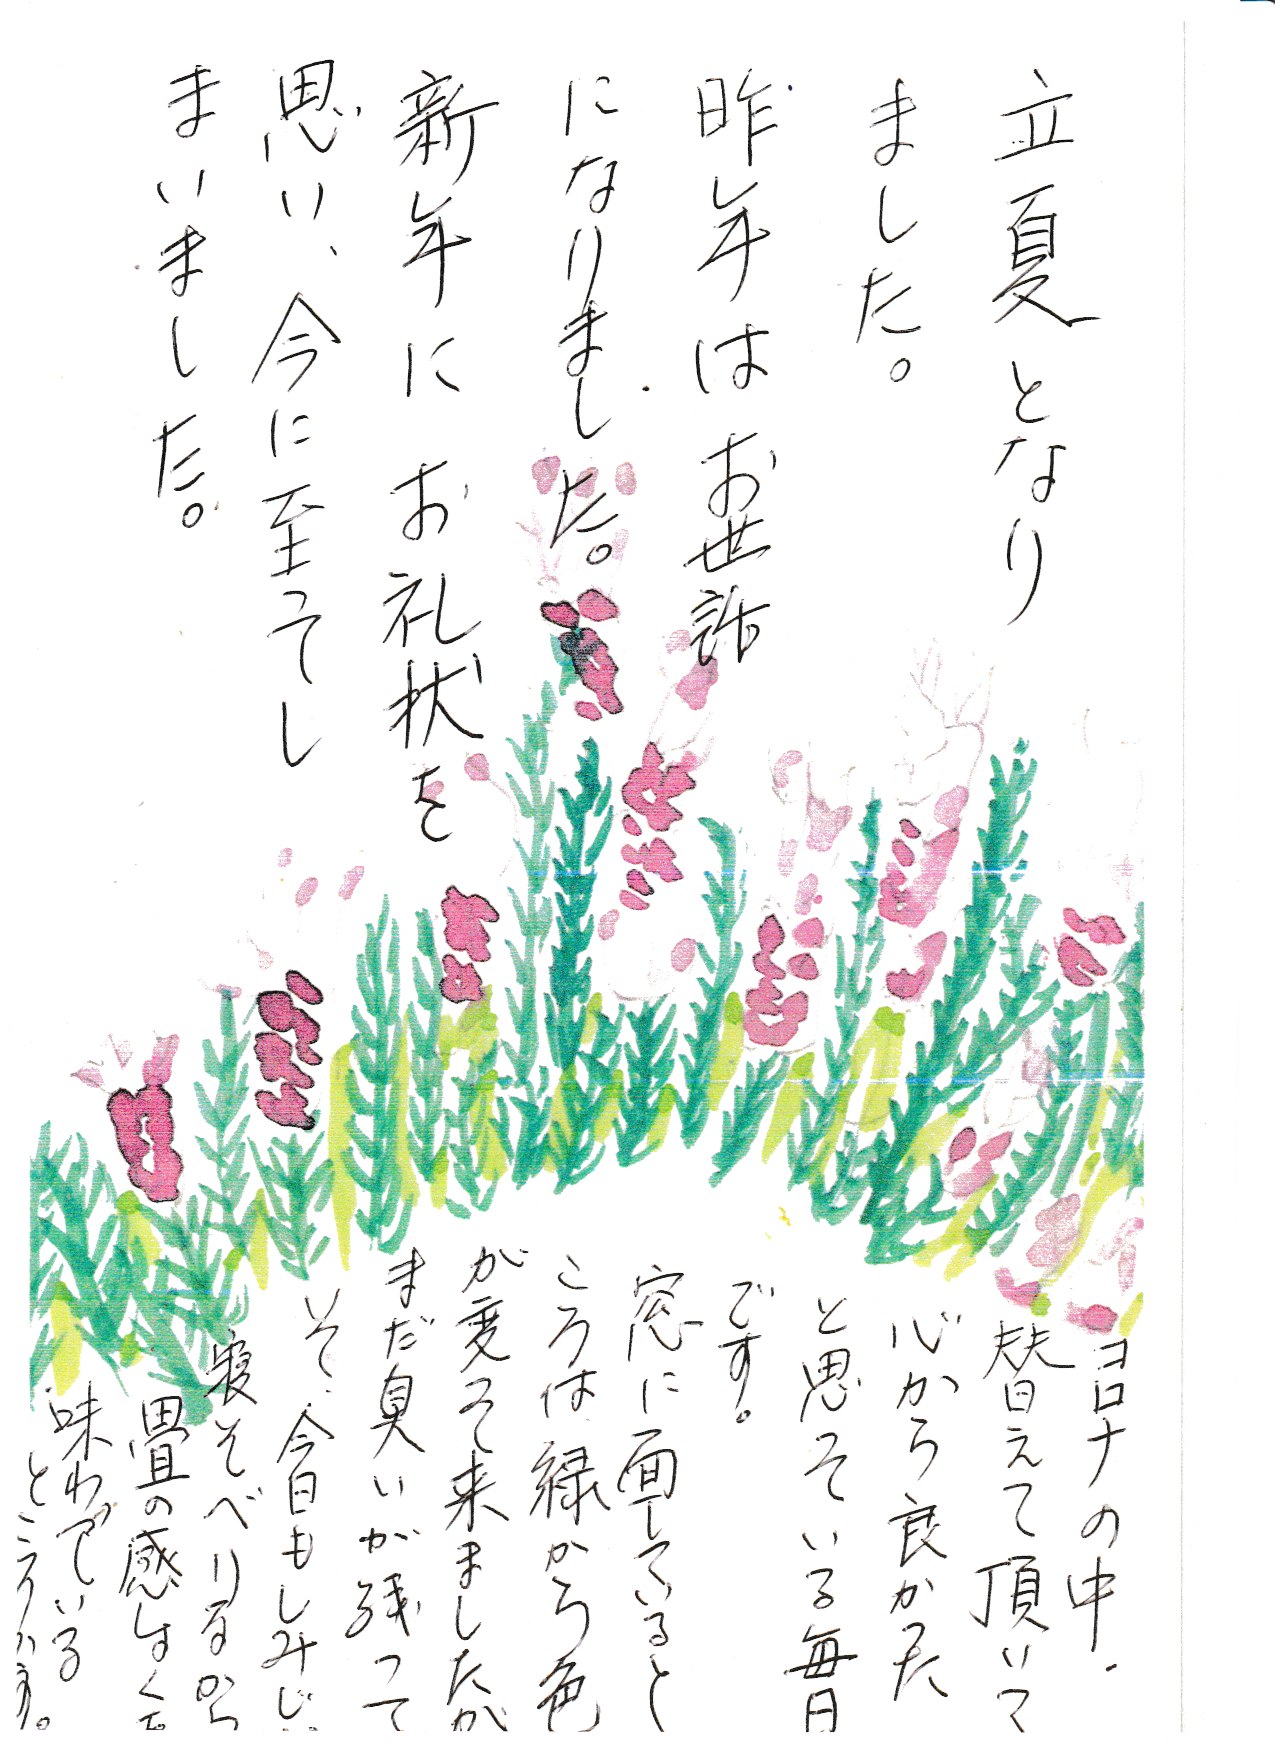 立夏となり
ました。
昨年はお世話
になりました。
新年にお礼状を
思い、今に至てし
まいました。
コロナの中.
替えて頂いて
心から良かった
と思っている毎日
です。
窓に面していると
ころは緑から色
が変って来ましたが
まだ臭いが残って
いて、今日もしみじ
寝そべりながら
畳の感
味わっている
ところです。